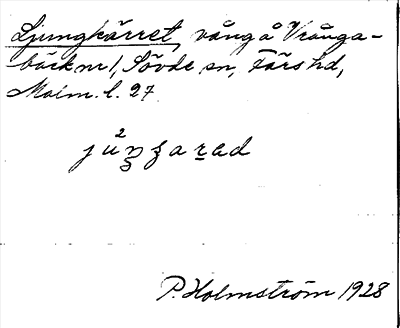 Ljungkärret, vång å Vrånga-
bäck nr 1, Sövde sn, Färs hd,
Malm. l. 27.
P. Holmström 1928